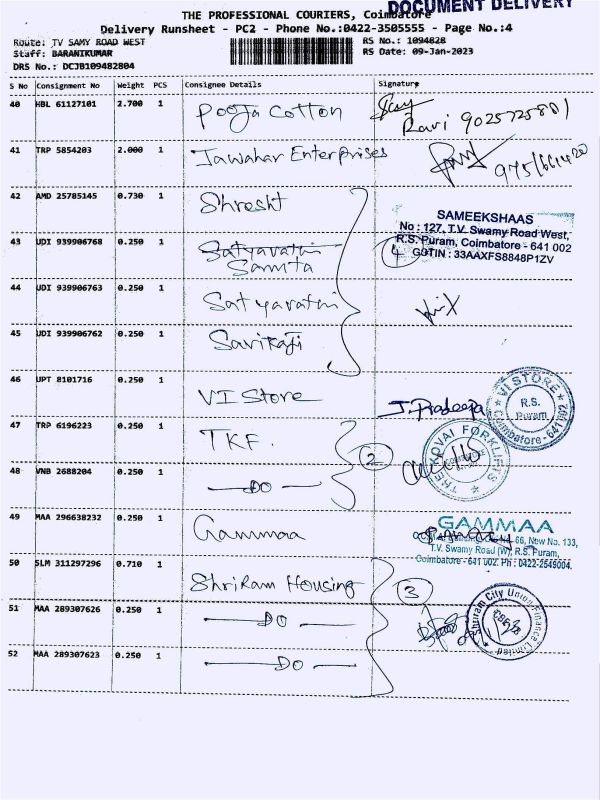 DOCUMENT DELIVERY
THE PROFESSIONAL COURIERS, Coimbatore
Delivery Runsheet - PC2 - Phone No.:0422-3505555 - Page No.:4
Route: TV SAMY ROAD WEST RS No.: 1094828
Staff: BARANIKUMAR RS Date: 09-Jan-2023
DRS No.: DCJB109482804
S No Consignment No Weight PCS Consignee Details Signature
40 KBL 61127101 2.700 1 Pooja Cotton
Ravi 9025725801
41 TRP 5854203 2.000 1 Jawahar Enterprises
42 AMD 25785145 0.730 1 Shresht
SAMEEKSHAAS
No : 127, T.V. Swamy Road West,
R.S. Puram, Coimbatore - 641 002
GSTIN : 33AAXFS8848P1ZV
43 UDI 939906768 0.250 1 Satyavathi
Samta
4
44 UDI 939906763 0.250 1 Satyavathi
45 UDI 939906762 0.250 1
46 UPT 8101716 0.250 1 VI Store J. Pradeepa
VI STORE
R.S.
Puram
Coimbatore - 641 002
47 TRP 6196223 0.250 1 TKF.
2
THE KOVAI FORKLIFTS
48 VNB 2688204 0.250 1 DO
49 MAA 296638232 0.250 1 Gammaa
GAMMAA
66, New No. 133,
T.V. Swamy Road (W), R.S. Puram,
Coimbatore - 641 002. Ph : 0422-2545004.
50 SLM 311297296 0.710 1 Shriram Housing
3
51 MAA 289307626 0.250 1 DO
Shriram City Union Finance Limited
52 MAA 289307623 0.250 1 DO